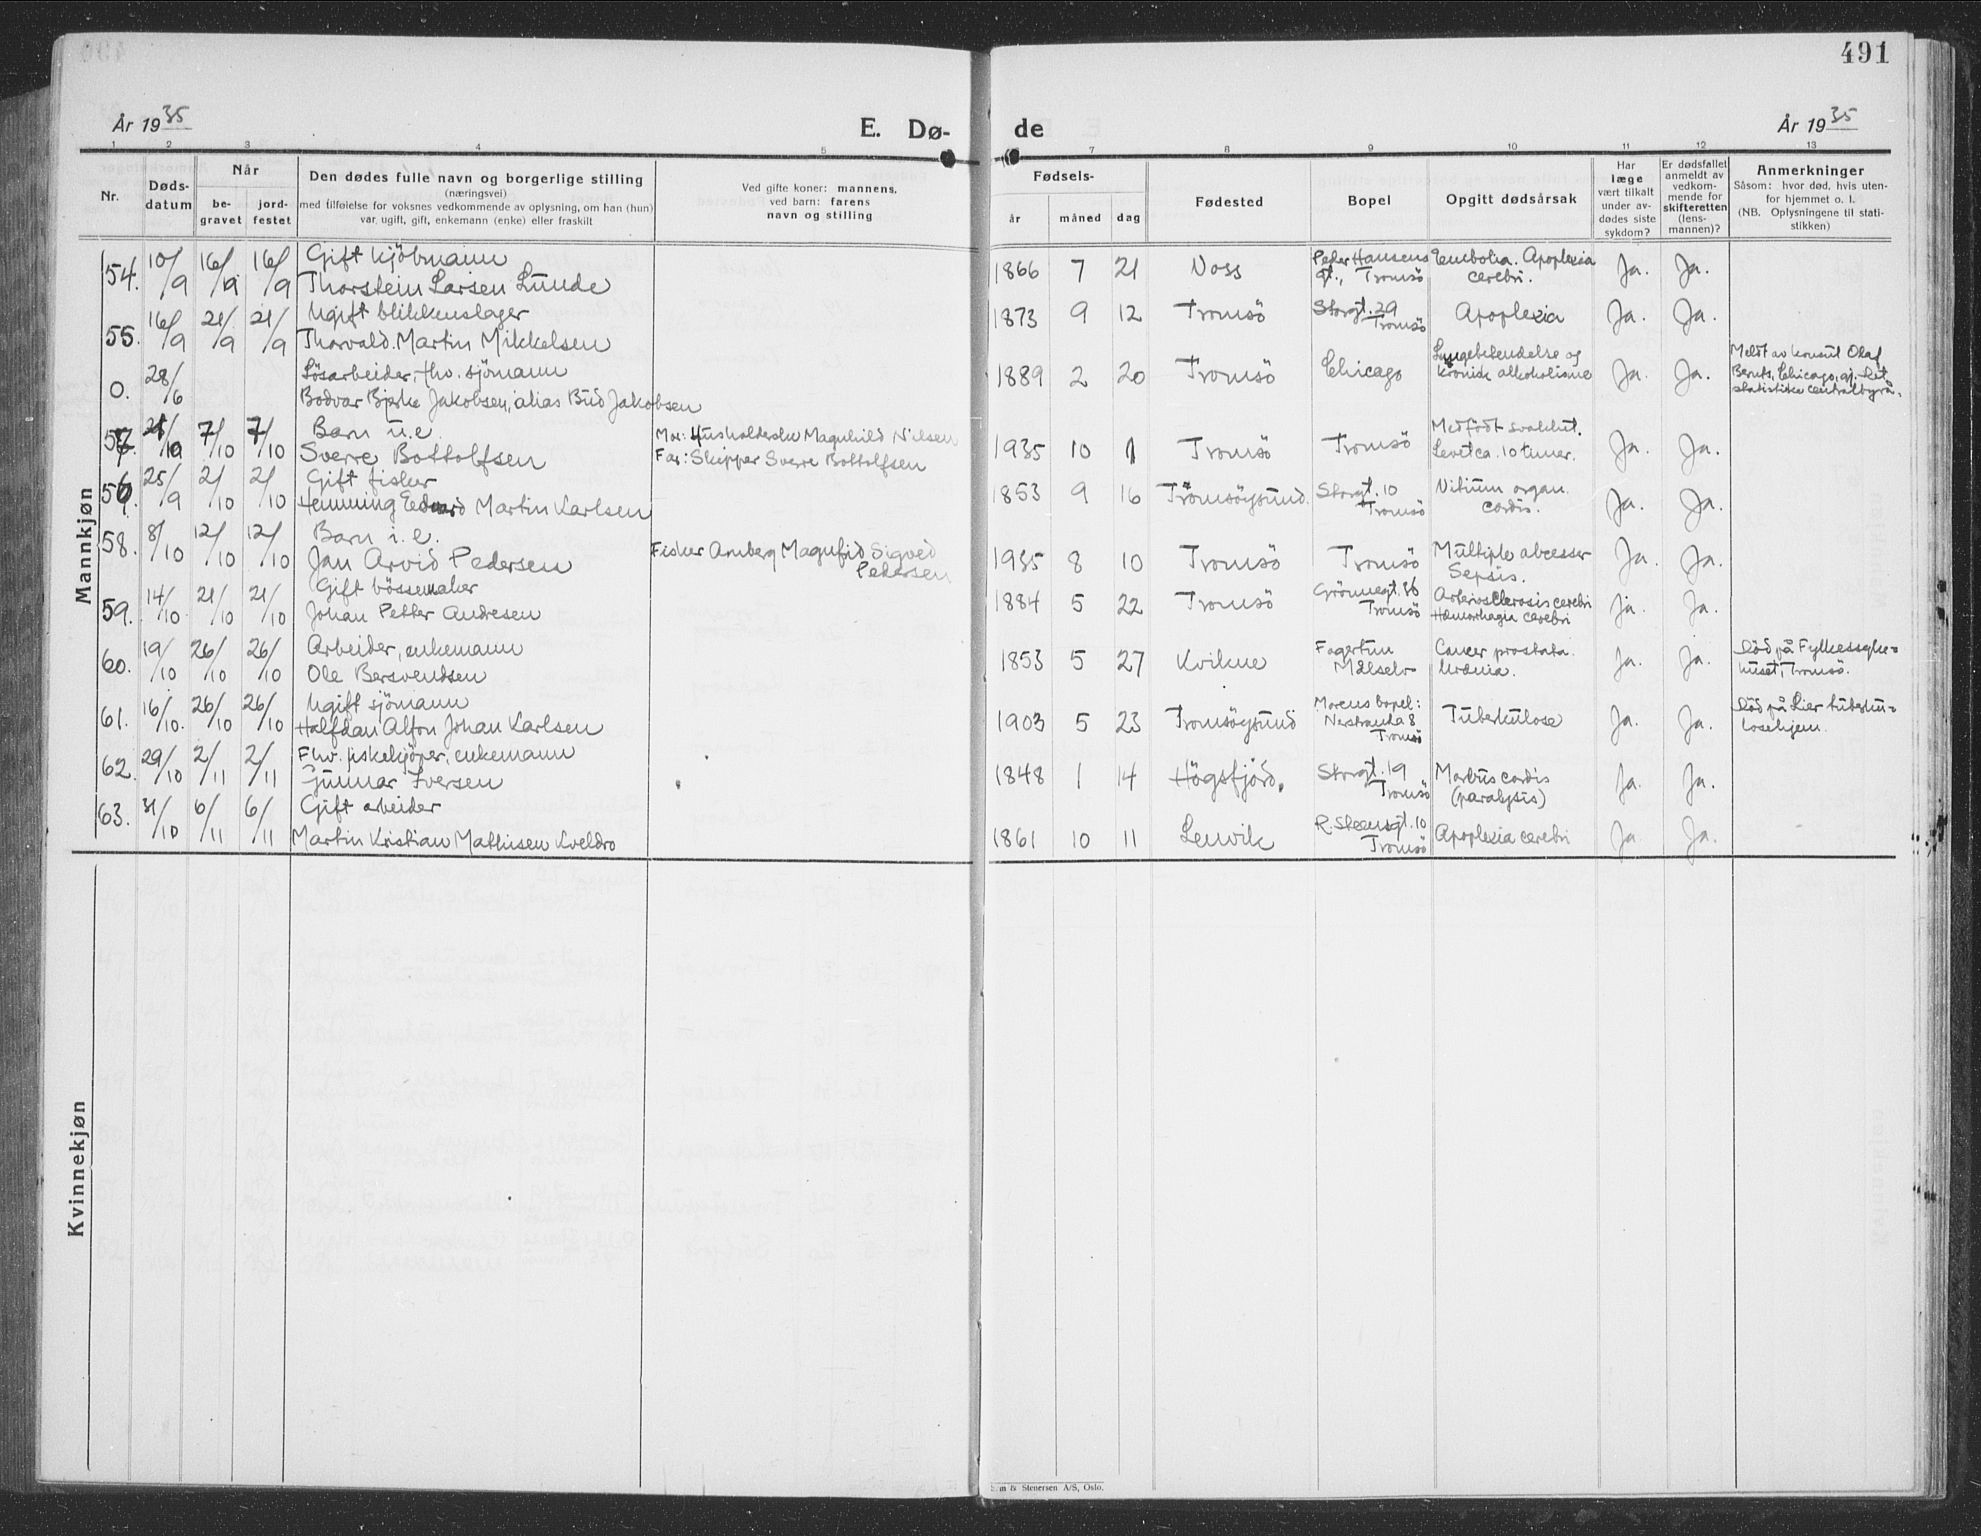 491
År 1935
E. Dø-
de
År 1935
1 2 3 4 5 7 8 9 10 11 12 13
Nr.
Døds-
datum
Når
be-
gravet
jord-
festet
Den dødes fulle navn og borgerlige stilling
(næringsvei)
med tilføielse for voksnes vedkommende av oplysning, om han (hun)
var ugift, gift, enkemann (enke) eller fraskilt
Ved gifte koner: mannens,
ved barn: farens
navn og stilling
Fødsels-
år måned dag
Fødested
Bopel
Opgitt dødsårsak
Har
læge
vært tilkalt
under av-
dødes siste
sykdom?
Er dødsfallet
anmeldt av
vedkom-
mende for
skifteretten
(lens-
mannen)?
Anmerkninger
Såsom: hvor død, hvis uten-
for hjemmet o. l.
(NB. Oplysningene til stati-
stikken)
Mannkjøn
54. 10/9 16/9 16/9 Gift kjöbmann
Thorstein Larsen Lunde
1866 7 21 Voss Peder Hansens
gt., Tromsö Embolia. Apoplexia
cerebri. Ja. Ja.
55. 16/9 21/9 21/9 Ugift blikkenslager
Thorvald Martin Mikkelsen
1873 9 12 Tromsö Storgt. 29
Tromsö Apoplexia Ja. Ja.
0. 28/6 Lösarbeider, fhv. sjömann
Bodvar Bjerke Jakobsen, alias Bud Jakobsen
1889 2 20 Tromsö Chicago Lungebetendelse og
kronisk alkoholisme Ja. Ja. Meldt av konsul Olaf
Bernts, Chicago, gj. Det
statistiske centralbyrå.
57. /10 7/10 7/10 Barn u.e.
Sverre Bottolfsen
Mor: Husholderske Magnhild Nielsen
Far: Skipper Sverre Bottolfsen
1935 10 1 Tromsö Tromsö Medfödt svakhet.
Levet ca. 10 timer. Ja. Ja.
56. 25/9 2/10 2/10 Gift fisker
Henning Edvard Martin Karlsen
1853 9 16 Tromsöysund. Storgt. 10
Tromsö Vitium organ.
cordis. Ja. Ja.
58. 8/10 12/10 12/10 Barn i.e.
Jan Arvid Pedersen
Fisker Amberg Magnfrid Sigved
Pedersen
1935 8 10 Tromsö Tromsö Multiple abcesser
Sepsis. Ja. Ja.
59. 14/10 21/10 21/10 Gift bössemaker
Johan Petter Andresen
1884 5 22 Tromsö Grönnegt. 36
Tromsö Arteriosclerosis cerebri
Hæmorrhagia cerebri ja. Ja.
60. 19/10 26/10 26/10 Arbeider, enkemann
Ole Bersvendsen
1853 5 27 Kvikne Fagertun
Målselv Cancer prostata.
Urämia. Ja. Ja. Död på Fylkessyke-
huset, Tromsö.
61. 16/10. 26/10 26/10 Ugift sjömann
Halfdan Alfon Johan Karlsen
1903 5 23 Tromsöysund Morens bopel:
Nerstranda 8
Tromsö Tuberkulose Ja. Ja. Död på Lier tuberku-
losehjem.
62. 29/10 2/11 2/11 Fhv. fiskekjöper, enkemann
Gunnar Iversen
1848 1 14 Högsfjord. Storgt. 19
Tromsö Morbus cordis
(paralysis) Ja. Ja.
63. 31/10 6/11 6/11 Gift arbeider
Martin Kristian Mathisen Kveldro
1861 10 11 Lenvik R. Steensgt. 10
Tromsö Apoplexia cerebri Ja. Ja.
Kvinnekjøn
& Stenersen A/S, Oslo.